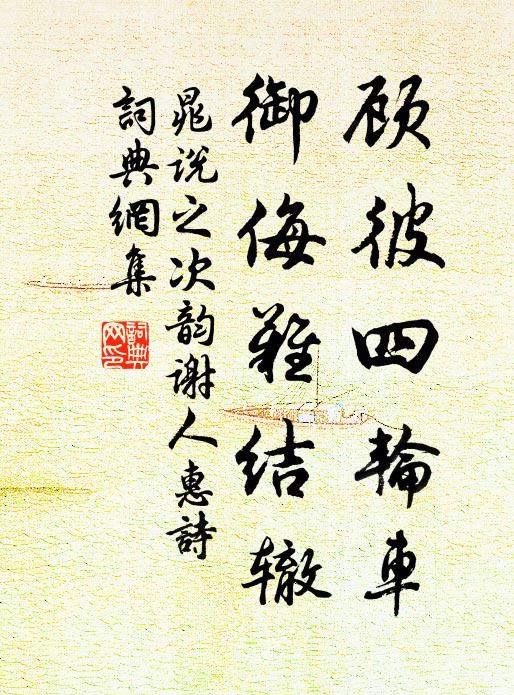 顾彼四輪車
御侮難结辙
晁说之次韵谢人惠詩
詞典網集
詞典網印